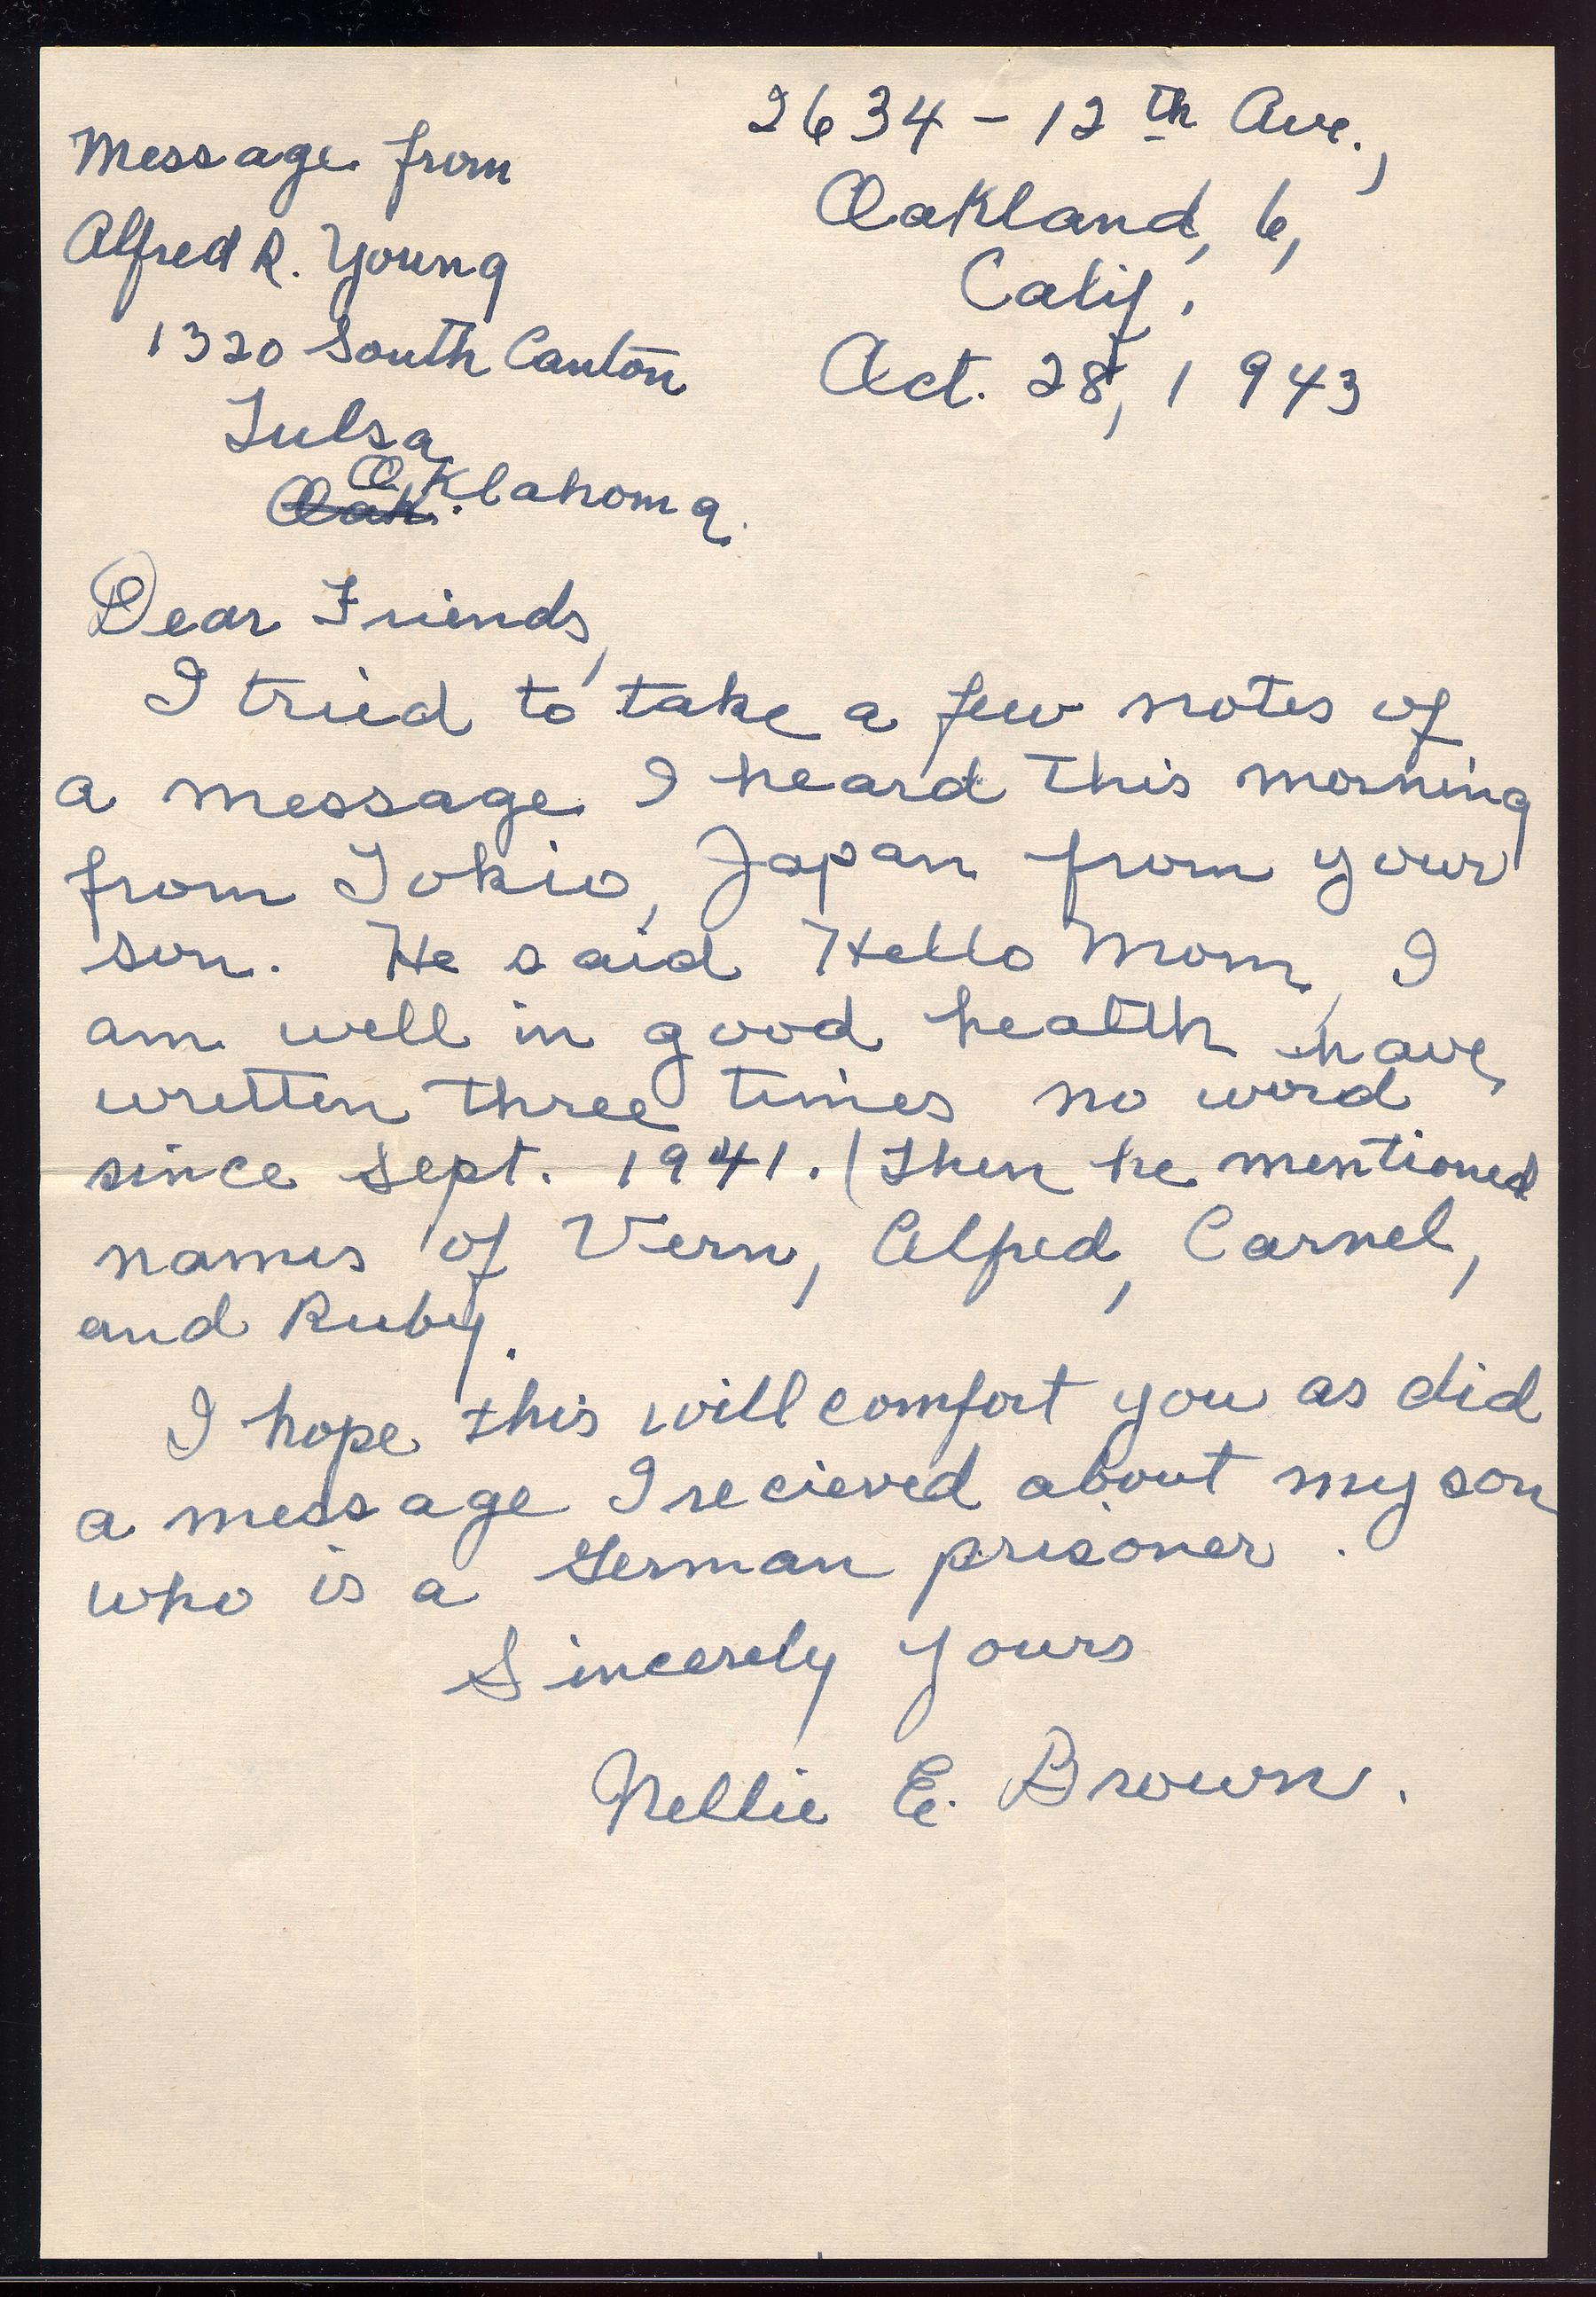 2634 - 12th Ave.,
Oakland, 6,
Calif.
Oct. 28, 1943
Message from
Alfred R. Young
1320 South Canton
Tulsa
Oak. Oklahoma.
Dear Friends,
I tried to take a few notes of
a message I heard this morning
from Tokio, Japan from your
son. He said Hello Mom, I
am well in good health have
written three times no word
since Sept. 1941. (Then he mentioned
names of Vern, Alfred, Carnel,
and Ruby.
I hope this will comfort you as did
a message I recieved about my son
who is a German prisoner.
Sincerely yours
Nellie E. Brown.